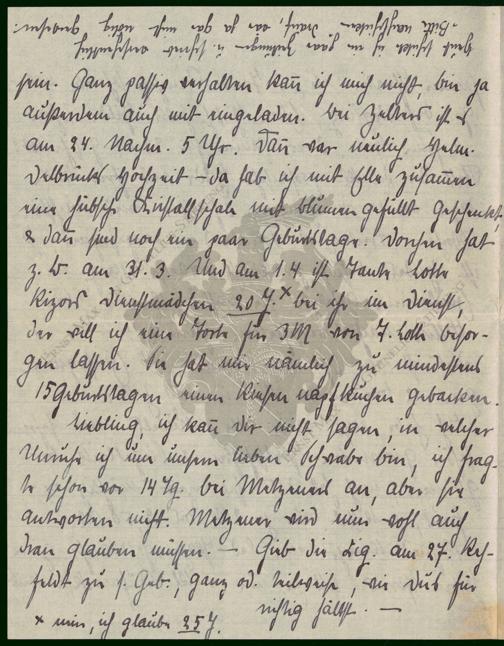 sein. Ganz passiv verhalten kañ ich mich nicht, bin ja
außerdem auch mit eingeladen. Bei Zelters ist es
am 24. Nachm. 5 Uhr. Dañ war neulich Helm.
Delbrücks Hochzeit – da hab ich mit Elle zusam̄en
eine hübsche Kristallschale mit Blumen gefüllt geschenkt,
& dañ sind noch ein paar Geburtstage. Dorchen hat
z. B. am 31. 3. Und am 1. 4. ist Tante Lotte
Kizors Dienstmädchen 20 J.× bei ihr im Dienst,
der will ich eine Torte für 3M von T. Lotte besor-
gen lassen. Sie hat mir nämlich zu mindestens
15 Geburtstagen einen Riesennapfkuchen gebacken.
Liebling, ich kañ dir nicht sagen, in welcher
Unruhe ich um unsern lieben Schwabe bin, ich frag-
te schon vor 14 Tg. bei Metzeners an, aber sie
antworten nicht. Metzener wird nun wohl auch
dran glauben müssen. — Gieb die Zig. am 27. Reh-
feldt zu s. Geb., ganz od. teilweise, wie du's für
richtig hältst. —
× nein, ich glaube 25 J.